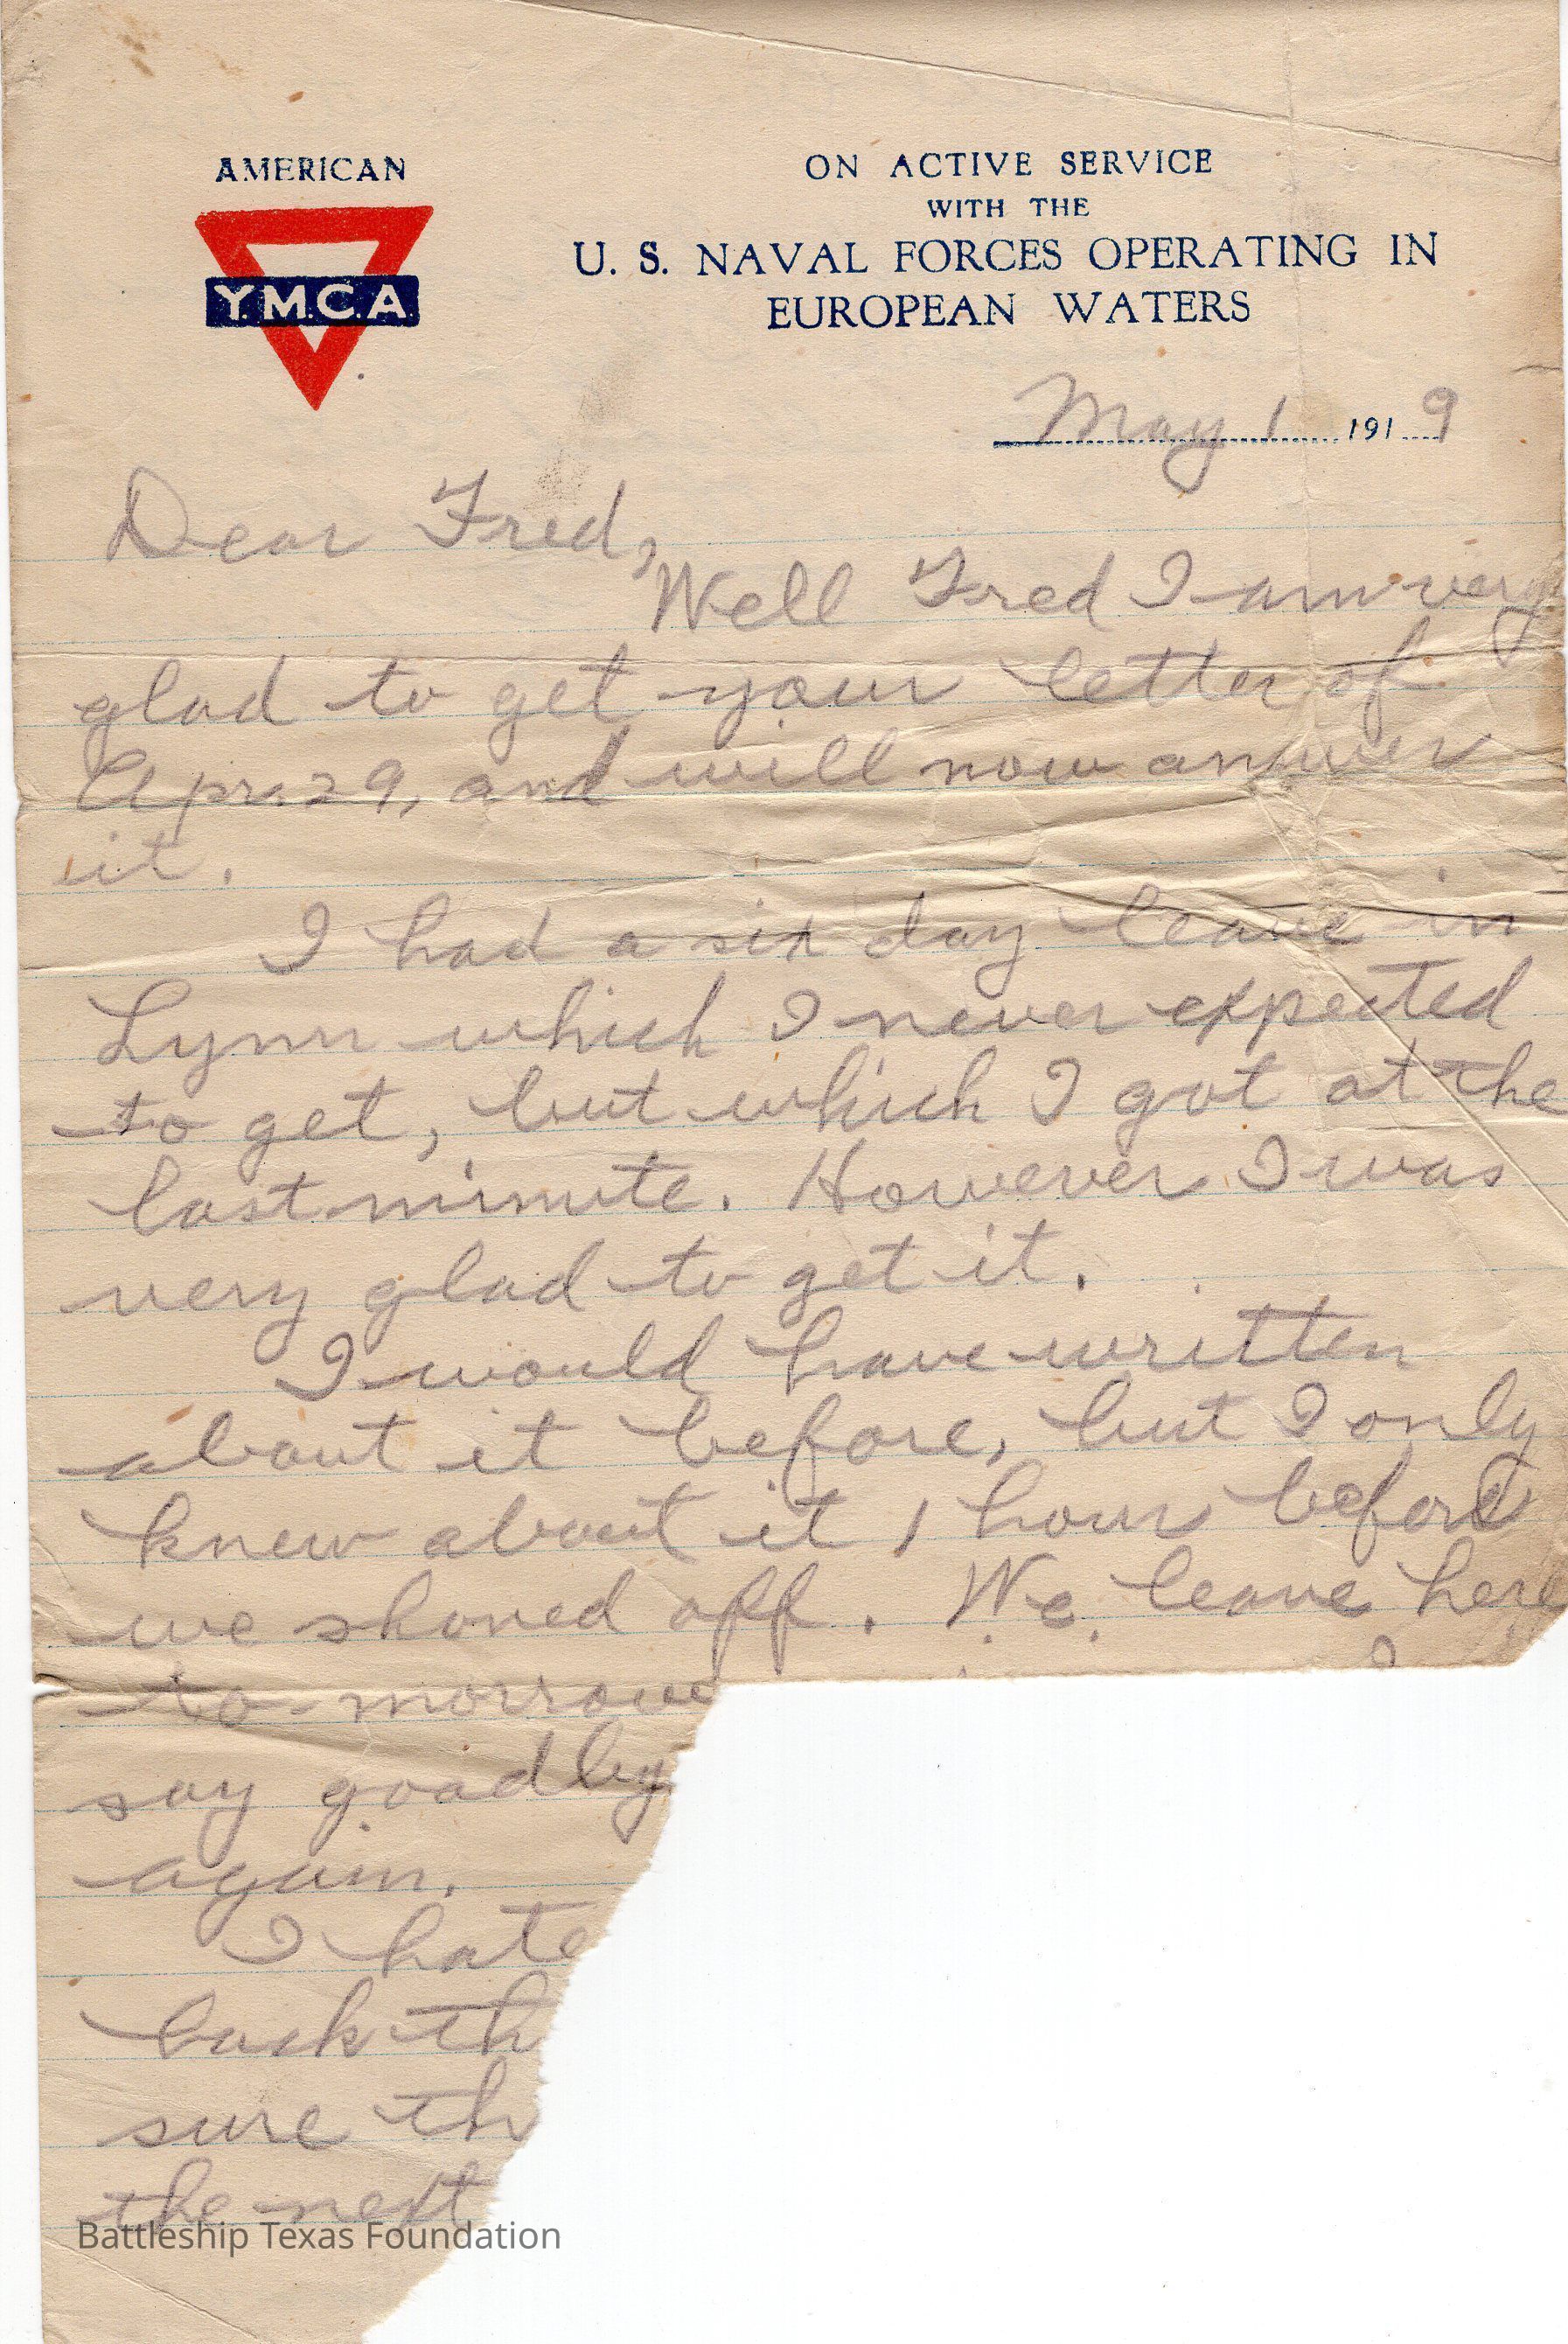 AMERICAN
Y.M.C.A
ON ACTIVE SERVICE
WITH THE
U. S. NAVAL FORCES OPERATING IN
EUROPEAN WATERS
May 1 1919
Dear Fred,
Well Fred I am very
glad to get your letter of
Apr. 29, and will now answer
it.
I had a six day leave in
Lynn which I never expected
to get, but which I got at the
last minute. However I was
very glad to get it.
I would have written
about it before, but I only
knew about it 1 hour before
we shoved off. We leave here
to-morrow
say goodby
again.
I hate
back th
sure th
the next
Battleship Texas Foundation